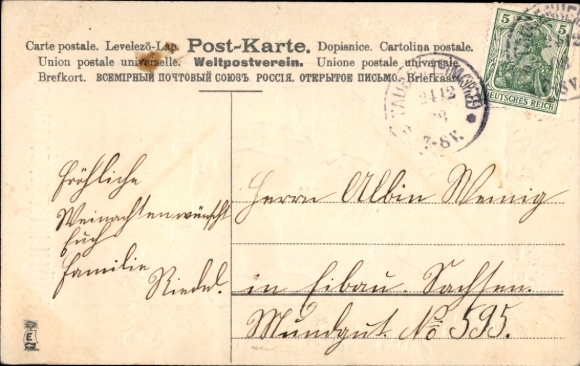 Carte postale. Levelező-Lap. Post-Karte. Dopisnice. Cartolina postale.
Union postale universelle. Weltpostverein. Unione postale universale.
Brefkort. ВСЕМІРНЫЙ ПОЧТОВЫЙ СОЮЗЪ РОССІЯ. ОТКРЫТОЕ ПИСЬМО. Briefkaart.
5 5
DEUTSCHES REICH
24 12
7-8V.
Fröhliche
Weinachten wünscht
Euch
Familie
Riedel.
Herrn Albin Wenig
in Eibau. Sachsen.
Mundgut. No 595.
E